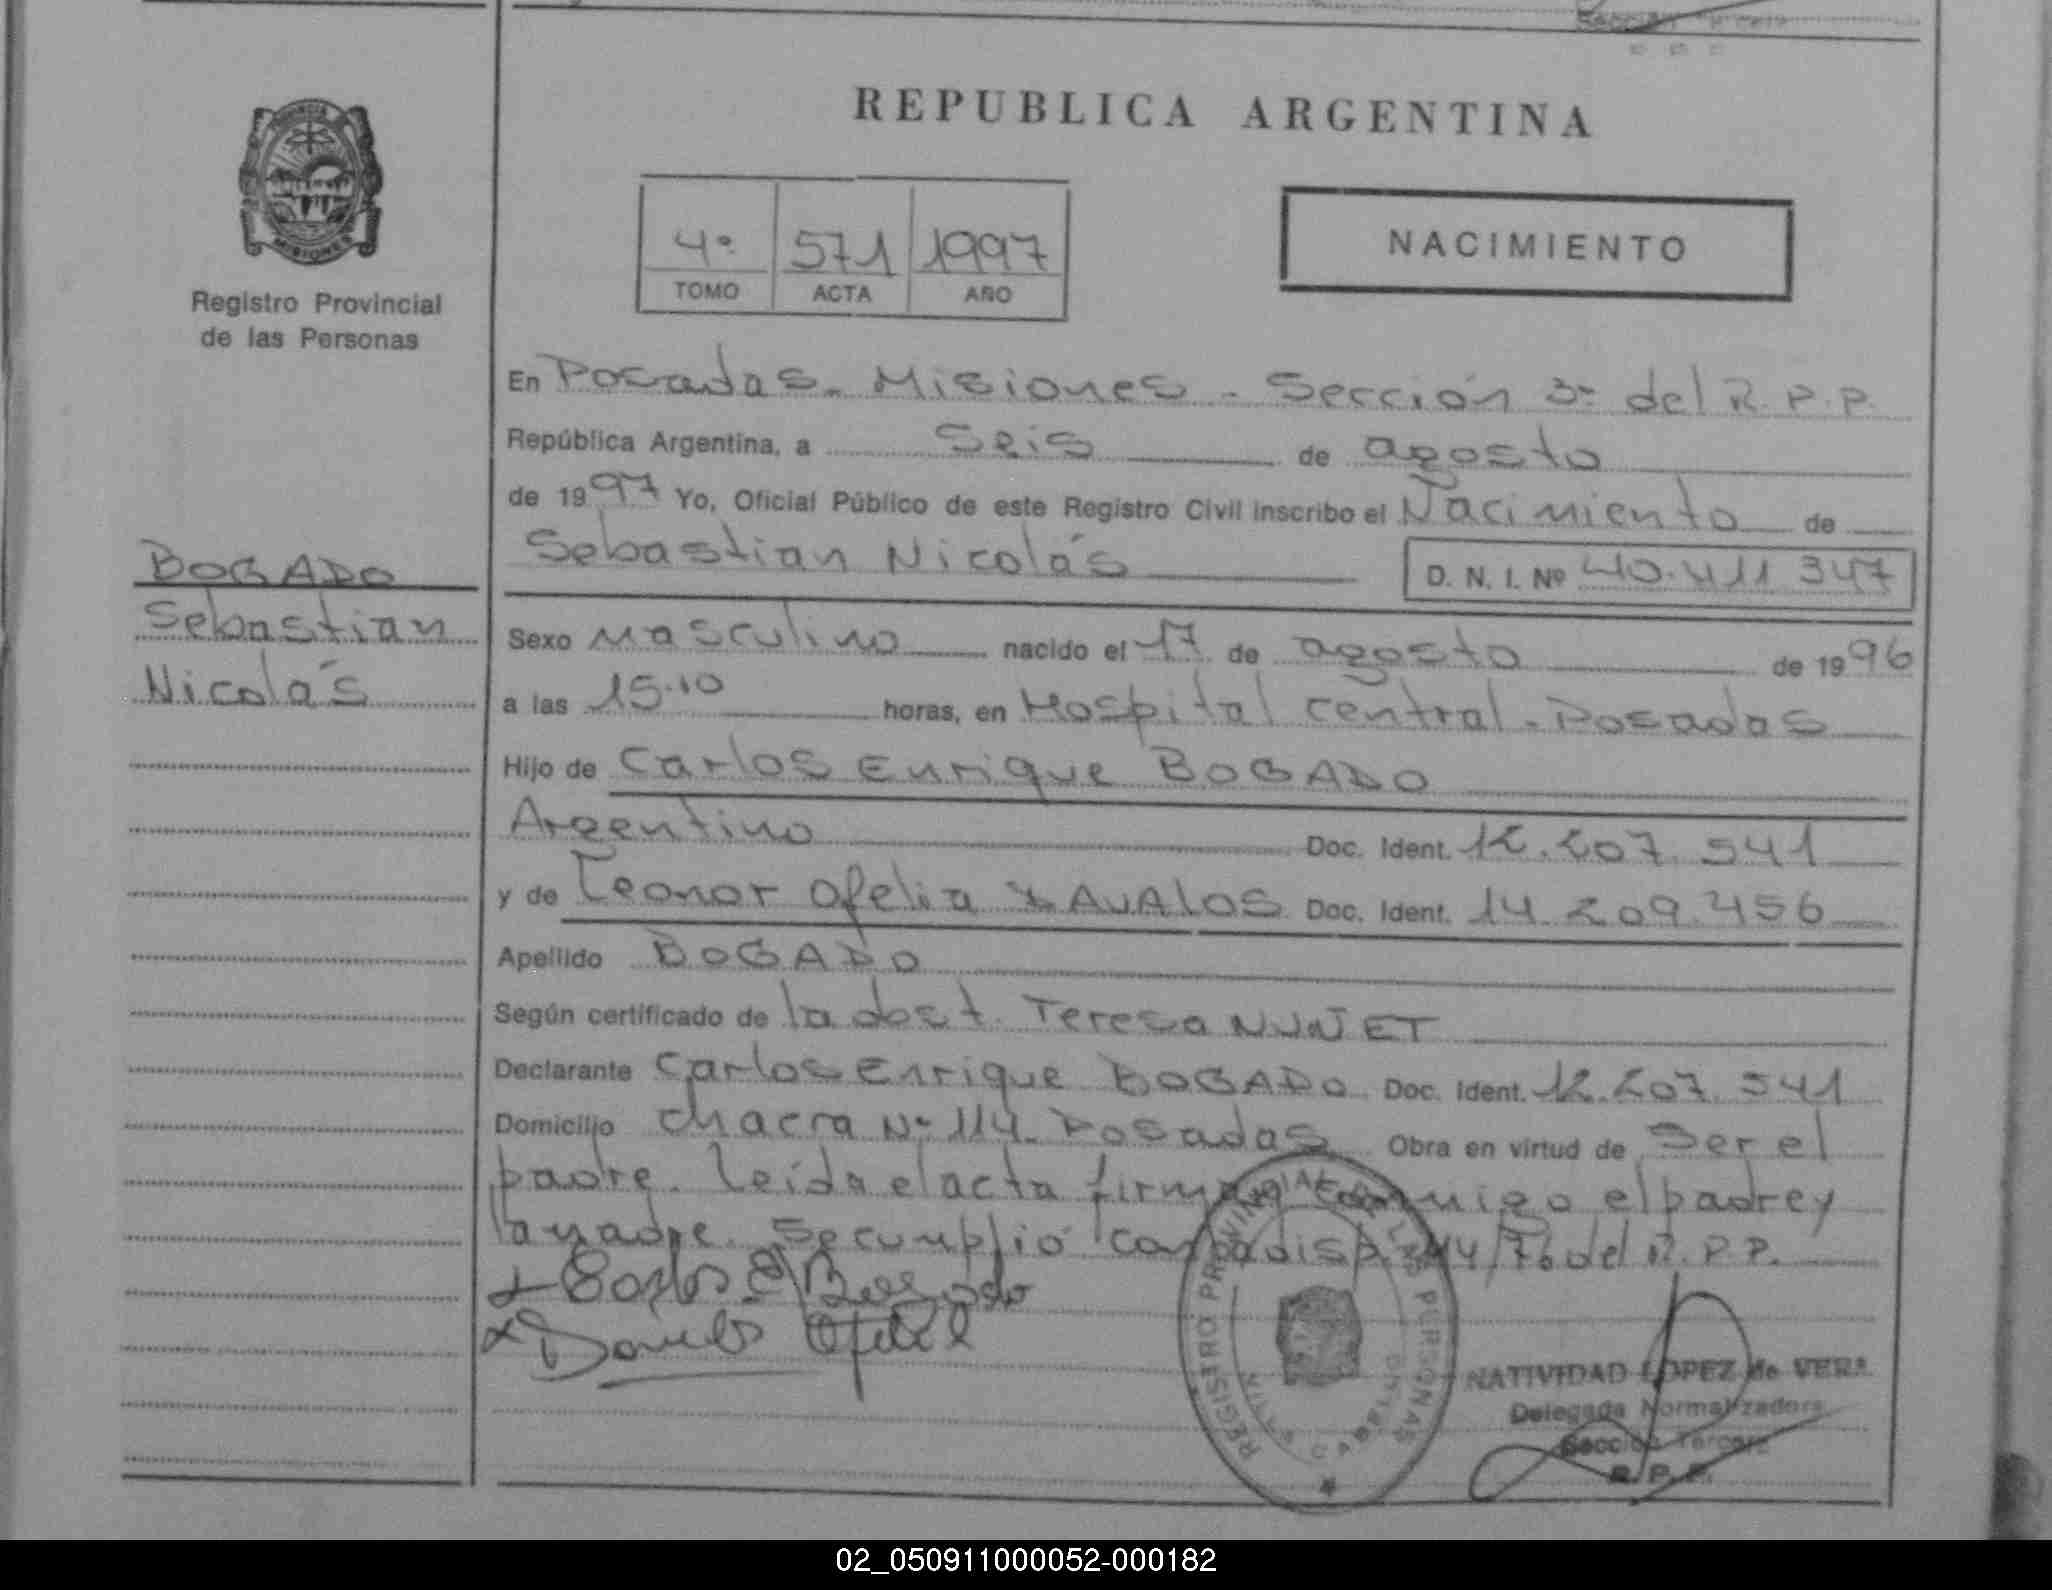 REPUBLICA ARGENTINA
PROVINCIA
MISIONES
Registro Provincial
de las Personas
4º 571 1997
TOMO ACTA AÑO
NACIMIENTO
En Posadas. Misiones. Sección 3º del R.P.P.
República Argentina, a Seis de agosto
de 1997 Yo, Oficial Público de este Registro Civil inscribo el Nacimiento de
Sebastian Nicolás D. N. I. Nº 40.411 347
BOGADO
Sebastian
Nicolás
Sexo Masculino nacido el 17 de agosto de 1996
a las 15.10 horas, en Hospital central. Posadas
Hijo de Carlos Enrique BOGADO
Argentino Doc. Ident. 12.207.541
y de Leonor Ofelia DAVALOS Doc. Ident. 14.209.456
Apellido BOGADO
Según certificado de la obst. Teresa
Declarante Carlos Enrique BOGADO Doc. Ident. 12.207.541
Domicilio chacra Nº 114. Posadas Obra en virtud de ser el
padre. Leída el acta firman conmigo el padre y
la madre. Se cumplió con la disp. 44/76 del R.P.P.
Carlos E Bogado
REGISTRO PROVINCIAL DE LAS PERSONAS
NATIVIDAD LOPEZ de VERA
Delegada Normalizadora
Sección Tercera
R. P. P.
02_050911000052-000182